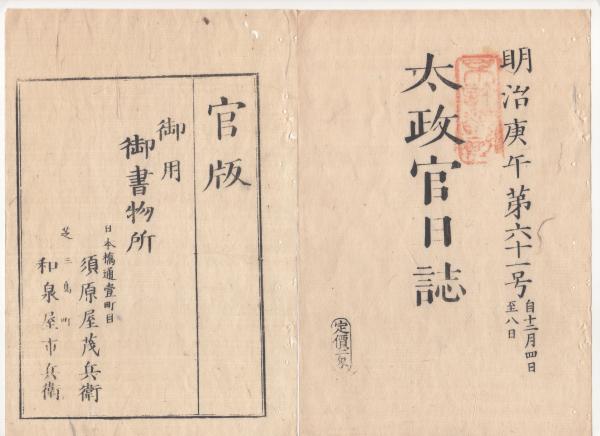 明治庚午第六十一号
自十二月四日
至八日
太政官日誌
定價
官版
御用
御書物所
日本橋通壹町目
須原屋茂兵衛
芝三島町
和泉屋市兵衛